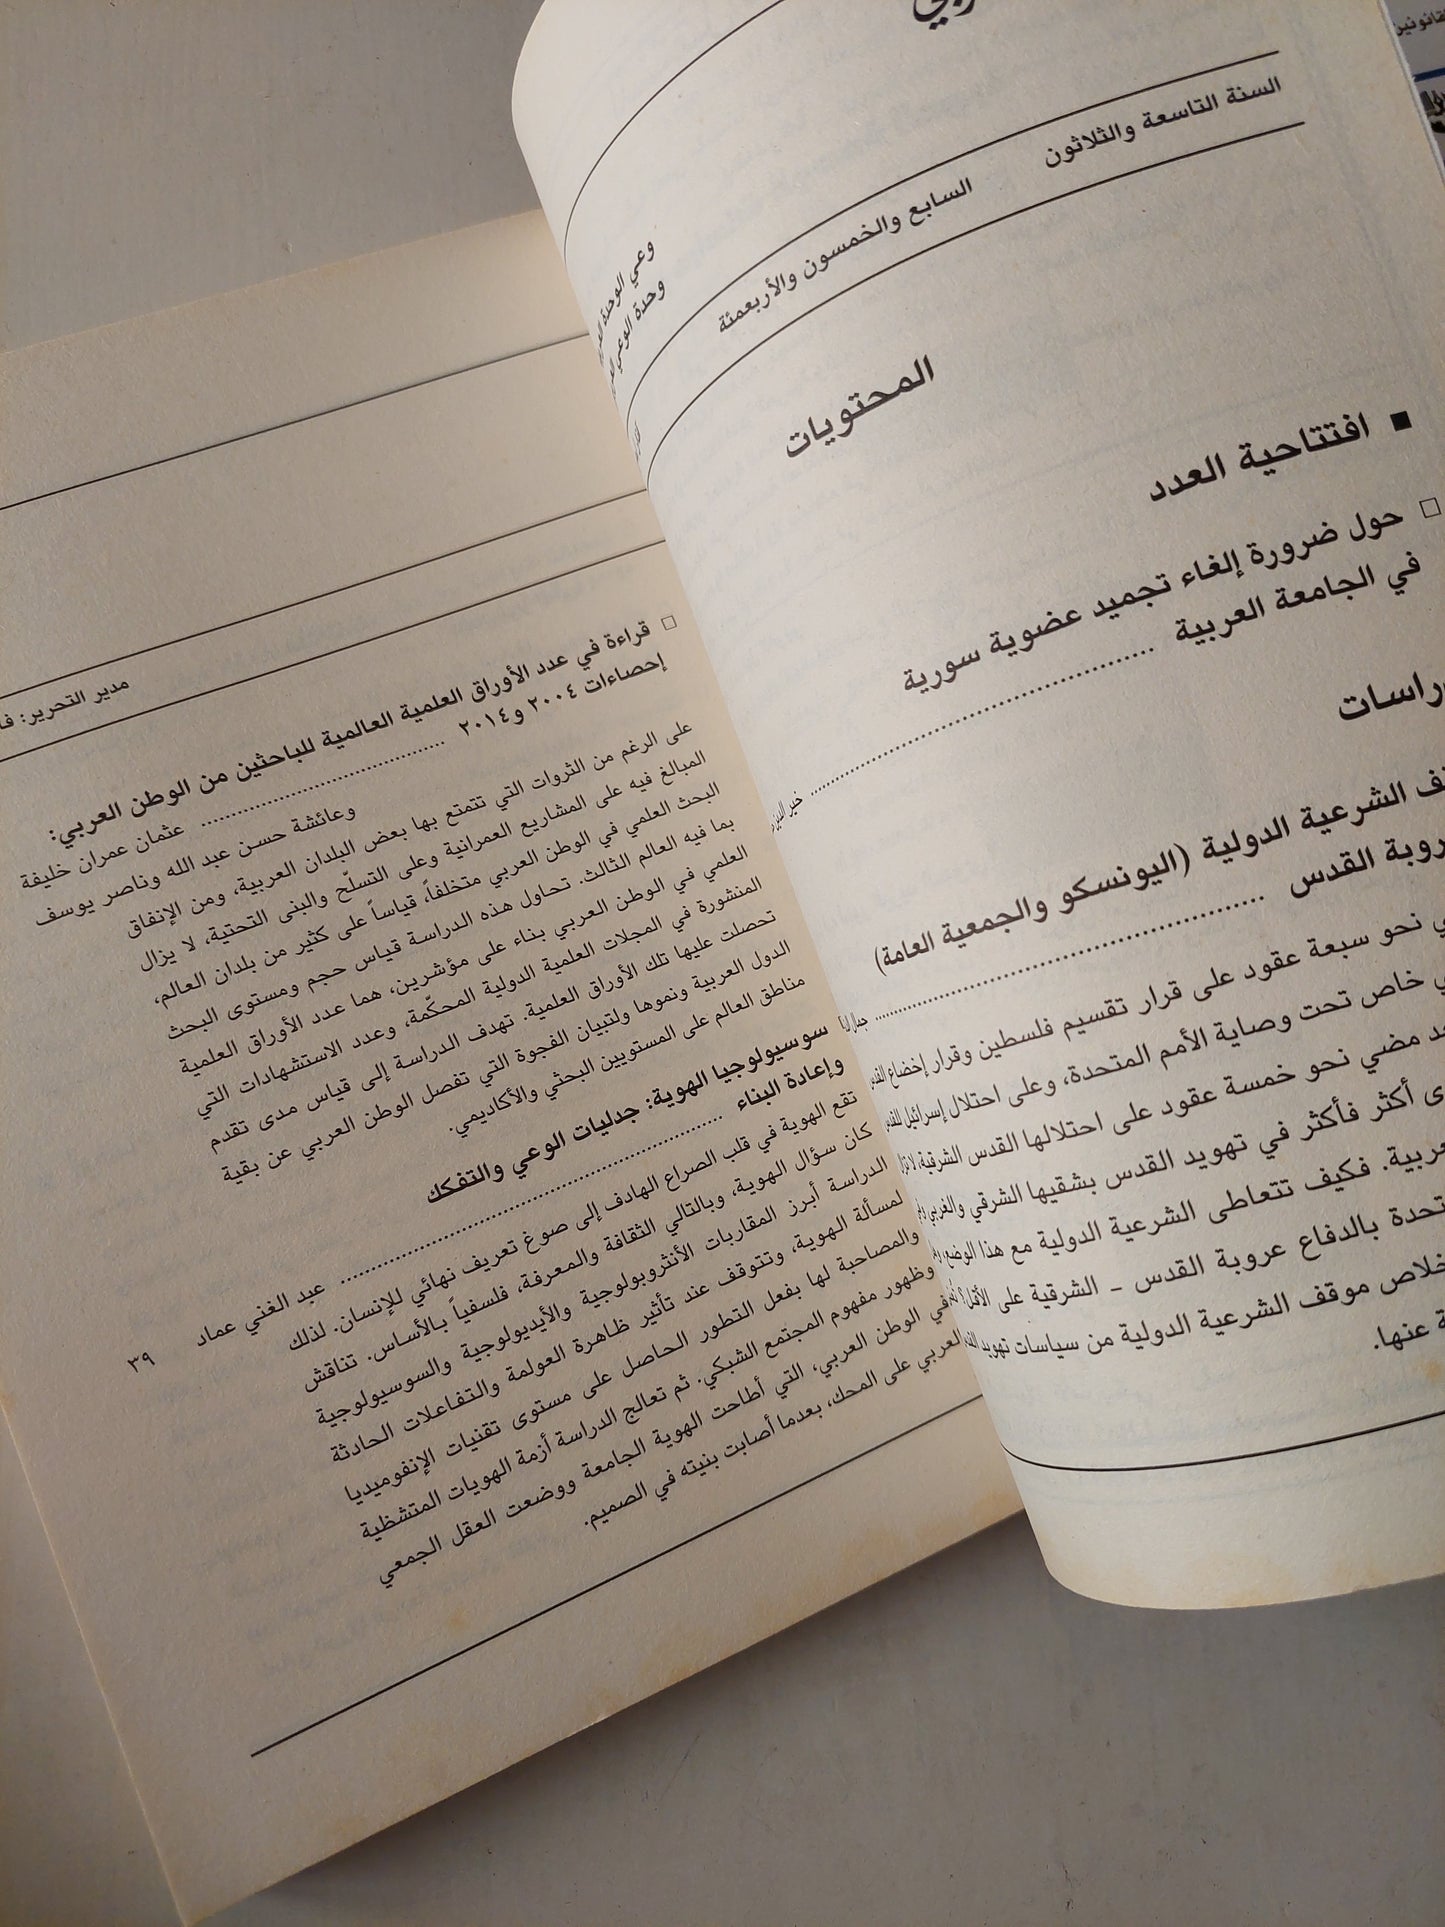 السنة التاسعة والثلاثون
السابع والخمسون والأربعمئة
المحتويات
■ افتتاحية العدد
□ حول ضرورة إلغاء تجميد عضوية سورية
في الجامعة العربية
الشرعية الدولية (اليونسكو والجمعية العامة)
القدس
نحو سبعة عقود على قرار تقسيم فلسطين وقرار إخضاع
خاص تحت وصاية الأمم المتحدة، وعلى احتلال إسرائيل
مضي نحو خمسة عقود على احتلالها القدس الشرقية،
أكثر فأكثر في تهويد القدس بشقيها الشرقي والغربي
فكيف تتعاطى الشرعية الدولية مع هذا الوضع،
بالدفاع عروبة القدس - الشرقية على الأقل؟
موقف الشرعية الدولية من سياسات تهويد
عنها.
وعي الوحدة
وحدة الوعي
مدير التحرير:
□ قراءة في عدد الأوراق العلمية العالمية للباحثين من الوطن العربي:
إحصاءات ٢٠٠٤ و٢٠١٤ ........ عثمان عمران خليفة
وعائشة حسن عبد الله وناصر يوسف
على الرغم من الثروات التي تتمتع بها بعض البلدان العربية، ومن الإنفاق
المبالغ فيه على المشاريع العمرانية وعلى التسلّح والبنى التحتية، لا يزال
البحث العلمي في الوطن العربي متخلفاً، قياساً على كثير من بلدان العالم،
بما فيه العالم الثالث. تحاول هذه الدراسة قياس حجم ومستوى البحث
العلمي في الوطن العربي بناء على مؤشرين، هما عدد الأوراق العلمية
المنشورة في المجلات العلمية الدولية المحكّمة، وعدد الاستشهادات التي
تحصلت عليها تلك الأوراق العلمية. تهدف الدراسة إلى قياس مدى تقدم
الدول العربية ونموها ولتبيان الفجوة التي تفصل الوطن العربي عن بقية
مناطق العالم على المستويين البحثي والأكاديمي.
سوسيولوجيا الهوية: جدليات الوعي والتفكك
وإعادة البناء ........ عبد الغني عماد ٣٩
تقع الهوية في قلب الصراع الهادف إلى صوغ تعريف نهائي للإنسان. لذلك
كان سؤال الهوية، وبالتالي الثقافة والمعرفة، فلسفياً بالأساس. تناقش
الدراسة أبرز المقاربات الأنثروبولوجية والأيديولوجية والسوسيولوجية
لمسألة الهوية، وتتوقف عند تأثير ظاهرة العولمة والتفاعلات الحادثة
والمصاحبة لها بفعل التطور الحاصل على مستوى تقنيات الإنفوميديا
وظهور مفهوم المجتمع الشبكي. ثم تعالج الدراسة أزمة الهويات المتشظية
في الوطن العربي، التي أطاحت الهوية الجامعة ووضعت العقل الجمعي
العربي على المحك، بعدما أصابت بنيته في الصميم.